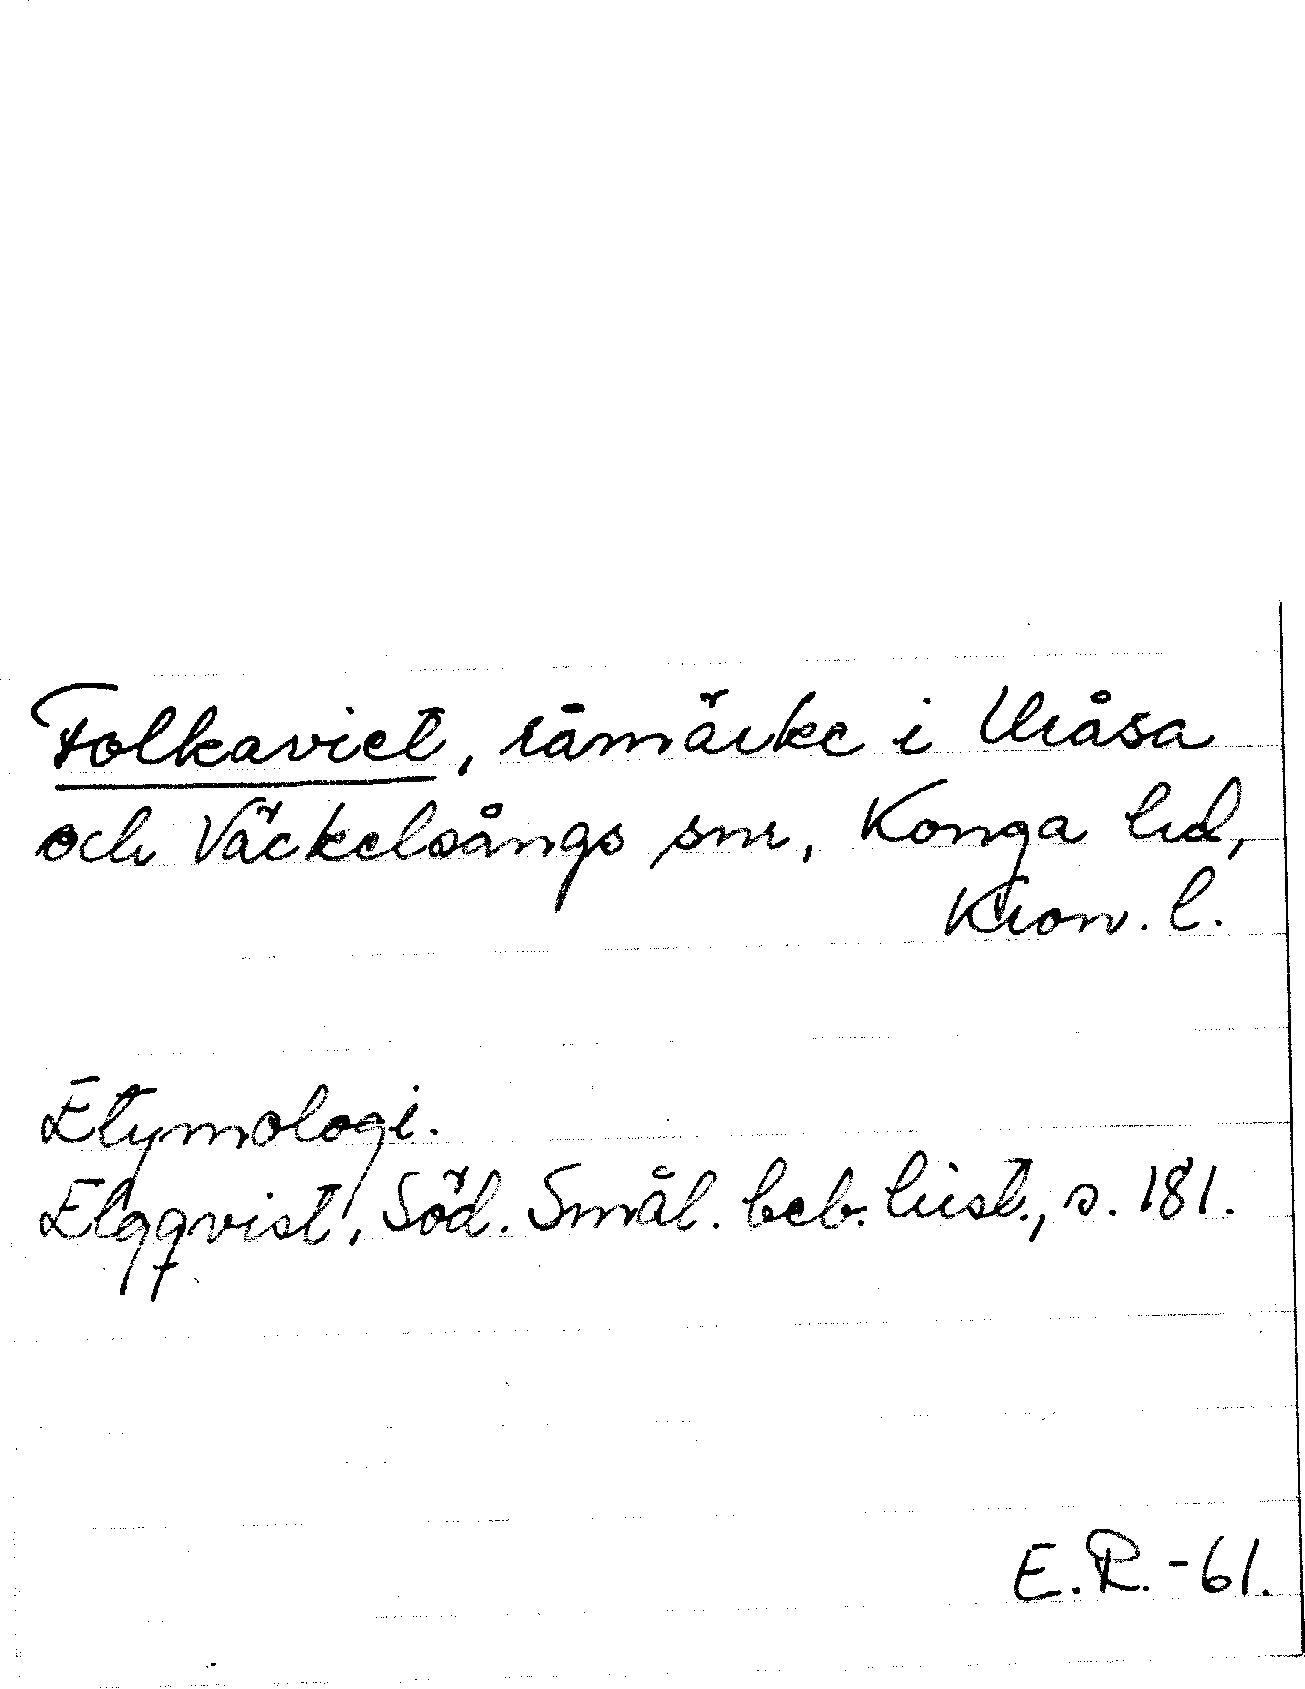 Folkaviet, råmärke i Uråsa
och Väckelsångs snr, Konga hd,
Kron. l.
Etymologi.
Elgqvist, Söd. Smål. beb. hist., s. 181.
E. R. - 61.